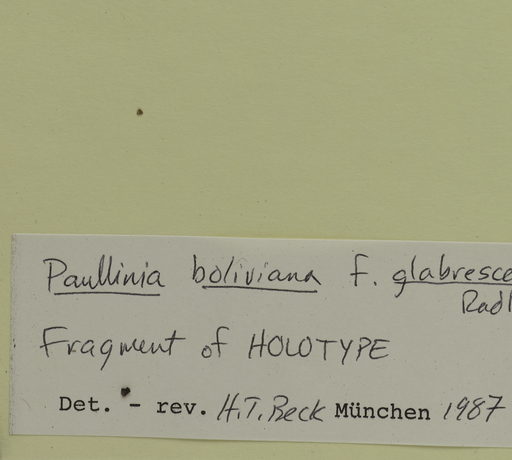 Paullinia boliviana f. glabresce
Radl
Fragment of HOLOTYPE
Det. - rev. H.T. Beck München 1987